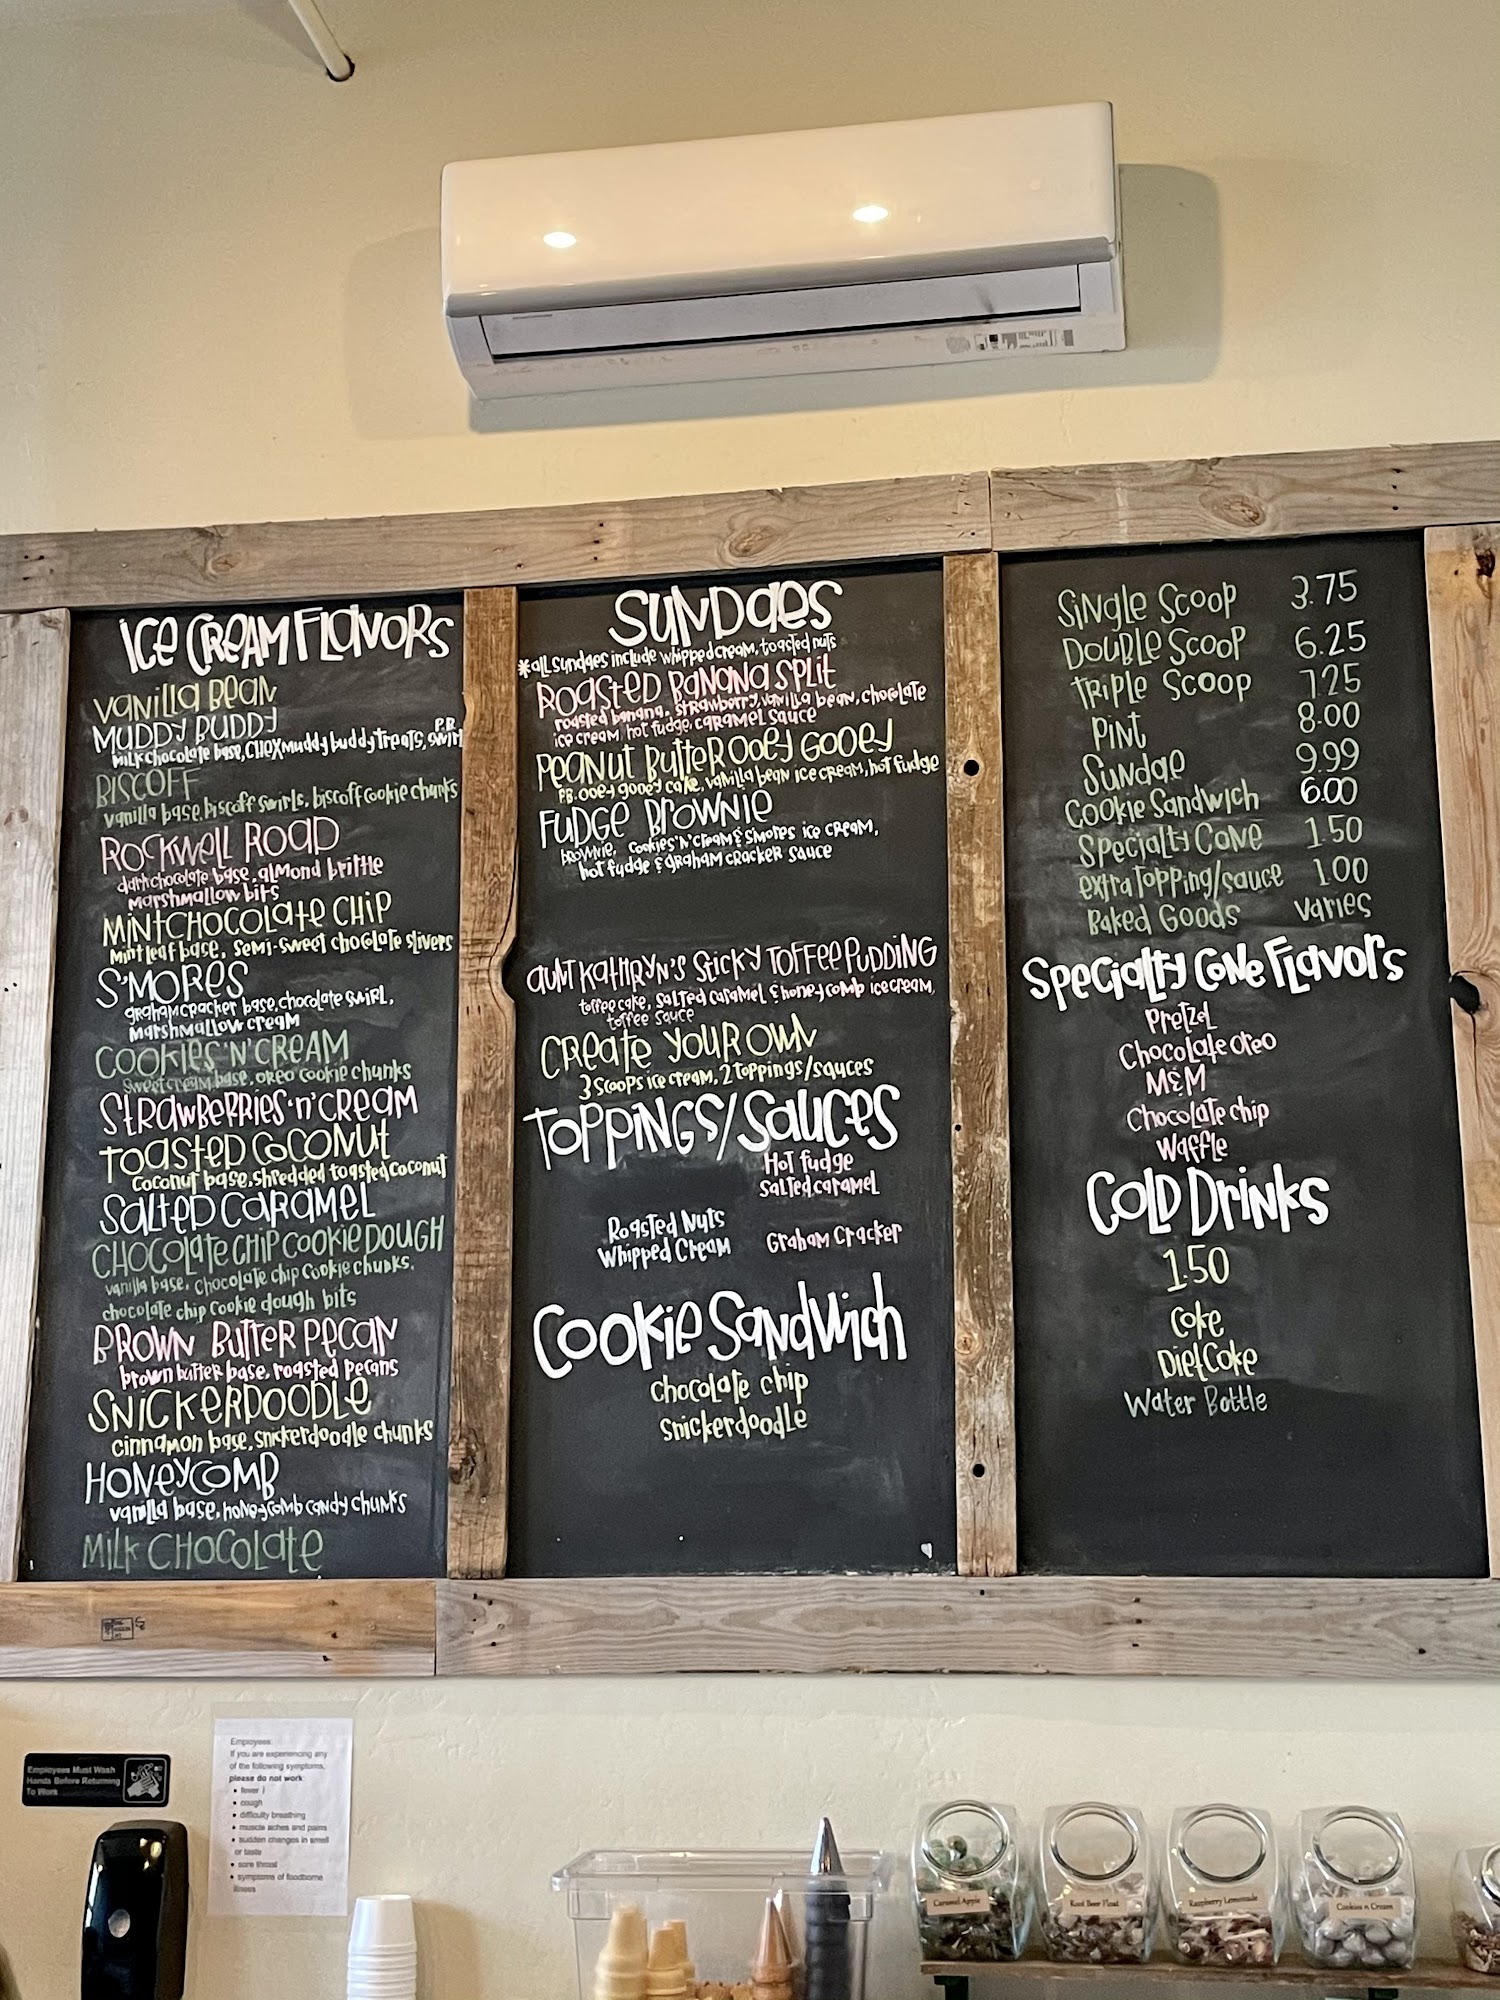 ICE CREAM FLAVORS
VANILLA BEAN
MUDDY BUDDY
P.B.
MILK chocolate base, CHEX muddy buddy TREATS, SWIRL
BISCOFF
vanilla base, biscoff swirls, biscoff cookie chunks
ROCKWELL ROAD
dark chocolate base, almond brittle
marshmallow bits
MINT CHOCOLATE CHIP
mint leaf base, semi-sweet chocolate slivers
S'MORES
graham cracker base, chocolate swirl,
marshmallow cream
COOKIES 'N' CREAM
sweet cream base, oreo cookie chunks
STRAWBERRIES 'n' CREAM
TOASTED COCONUT
coconut base, shredded toasted coconut
SALTED CARAMEL
CHOCOLATE CHIP COOKIE DOUGH
vanilla base, chocolate chip cookie chunks,
chocolate chip cookie dough bits
BROWN BUTTER PECAN
brown butter base, roasted pecans
SNICKERDOODLE
cinnamon base, snickerdoodle chunks
HONEYCOMB
vanilla base, honeycomb candy chunks
MILK CHOCOLATE
SUNDAES
*all sundaes include whipped cream, toasted nuts
ROASTED BANANA SPLIT
roasted banana, strawberry, vanilla bean, chocolate
ice cream, hot fudge, caramel sauce
PEANUT BUTTER OOEY GOOEY
P.B. ooey gooey cake, vanilla bean ice cream, hot fudge
FUDGE BROWNIE
brownie, cookies 'n' cream & smores ice cream,
hot fudge & graham cracker sauce
AUNT KATHRYN'S STICKY TOFFEE PUDDING
toffee cake, salted caramel & honeycomb ice cream,
toffee sauce
CREATE YOUR OWN
3 scoops ice cream, 2 toppings/sauces
TOPPINGS/SAUCES
Hot fudge
Salted caramel
Roasted Nuts
Whipped Cream
Graham Cracker
COOKIE SANDWICH
chocolate chip
snickerdoodle
Single Scoop 3.75
Double Scoop 6.25
Triple Scoop 7.25
Pint 8.00
Sundae 9.99
Cookie Sandwich 6.00
Specialty Cone 1.50
extra topping/sauce 1.00
Baked Goods varies
Specialty Cone Flavors
Pretzel
Chocolate Oreo
M&M
Chocolate chip
Waffle
Cold Drinks
1.50
Coke
Diet Coke
Water Bottle
Employees Must Wash
Hands Before Returning
To Work
Employees:
If you are experiencing any
of the following symptoms,
please do not work:
• fever
• cough
• difficulty breathing
• muscle aches and pains
• sudden changes in smell
or taste
• sore throat
• symptoms of foodborne
illness
Caramel Apple
Root Beer Float
Raspberry Lemonade
Cookies n Cream